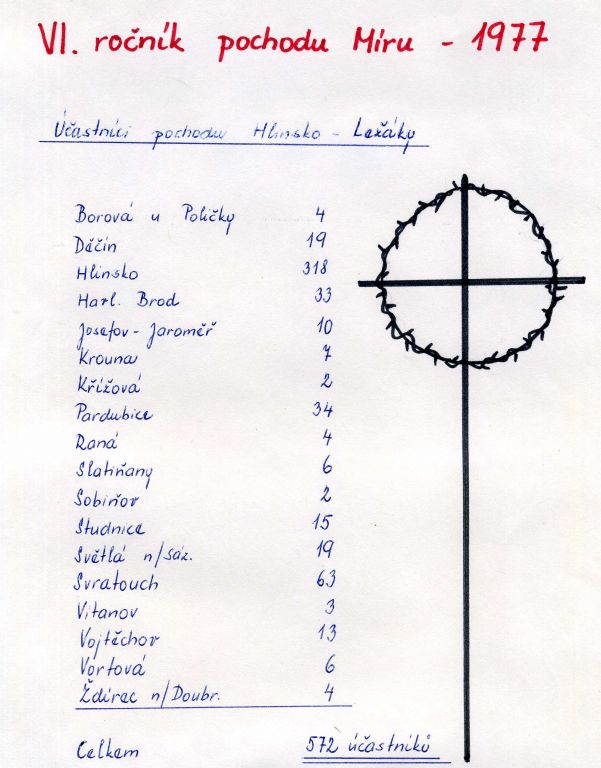 VI. ročník pochodu Míru - 1977
Účastníci pochodu Hlinsko - Ležáky
Borová u Poličky 4
Dáčin 19
Hlinsko 318
Havl. Brod 33
Josefov - Jaroměř 10
Krouna 7
Křížová 2
Pardubice 34
Raná 4
Slatiňany 6
Sobiňov 2
Studnice 15
Světlá n/Sáz. 19
Svratouch 63
Vítanov 3
Vojtěchov 13
Vortová 6
Ždírec n/Doubr. 4
Celkem 572 účastníků